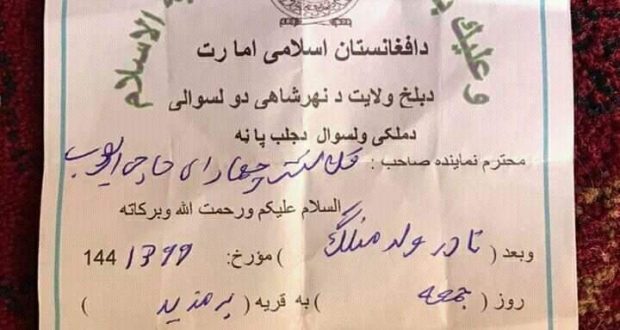 دافغانستان اسلامی امارت
دبلخ ولایت د نهرشاهی دو لسوالی
دملکی ولسوال دجلب پاڼه
محترم نماینده صاحب : حاجی ایوب
السلام علیکم ورحمت الله وبرکاته
وبعد ( نادر ولد ملنگ ) مؤرخ: 1399 144
روز ( جمعه ) به قریه ( )
وعلیک
الاسلام